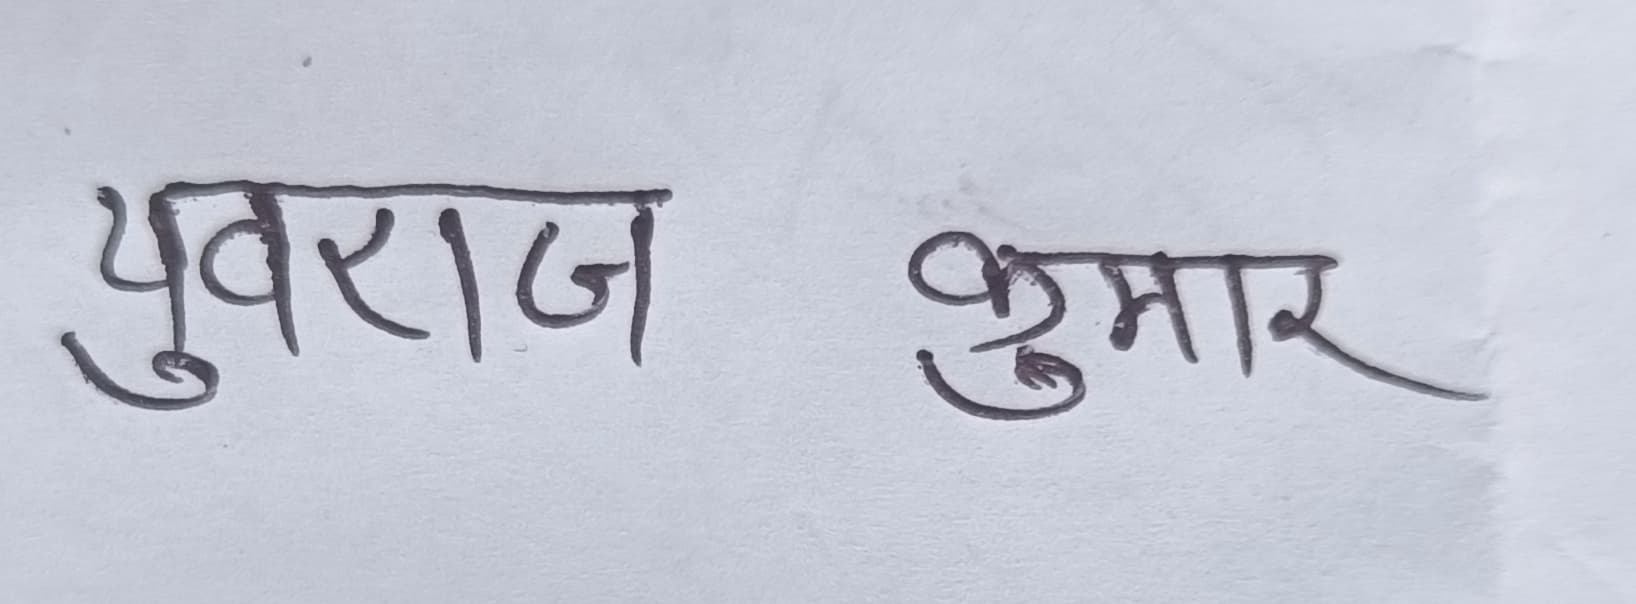 युवराज कुमार